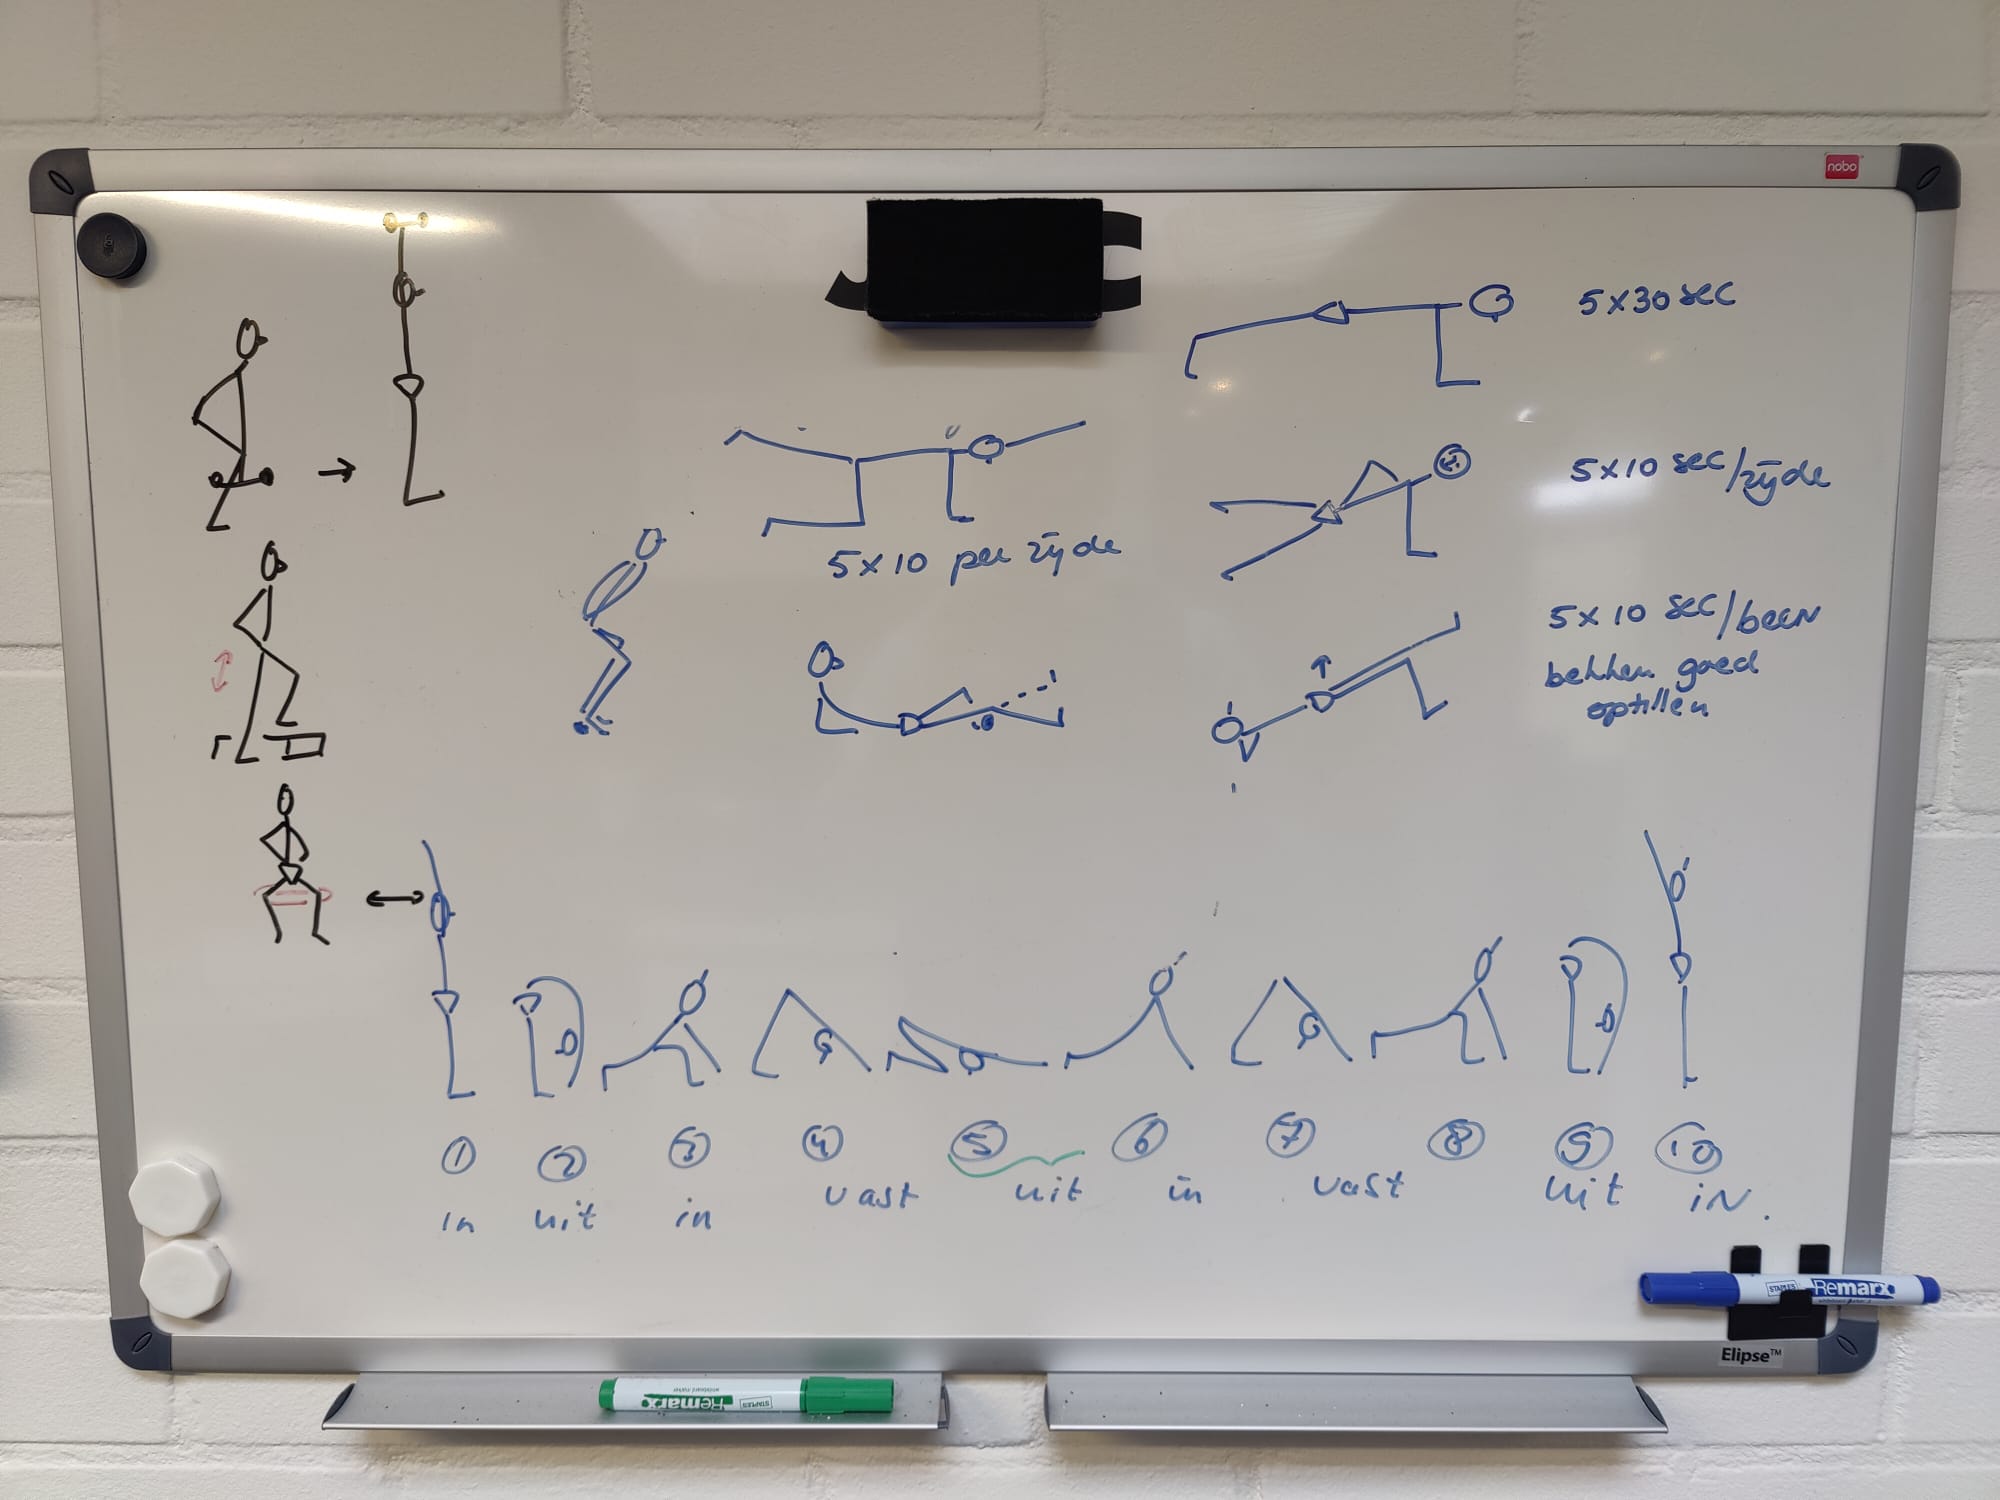 nobo
5x30 sec
5x10 sec/zijde
5x10 per zijde
5x10 sec/been
bekken goed
optillen
1 2 3 4 5 6 7 8 9 10
in uit in vast uit in vast uit in.
STAPLES Remarx
Elipse™
Remarx STAPLES
whiteboard marker